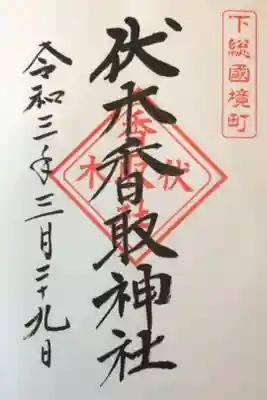 下総國境町
伏木香取神社
令和三年三月二十九日